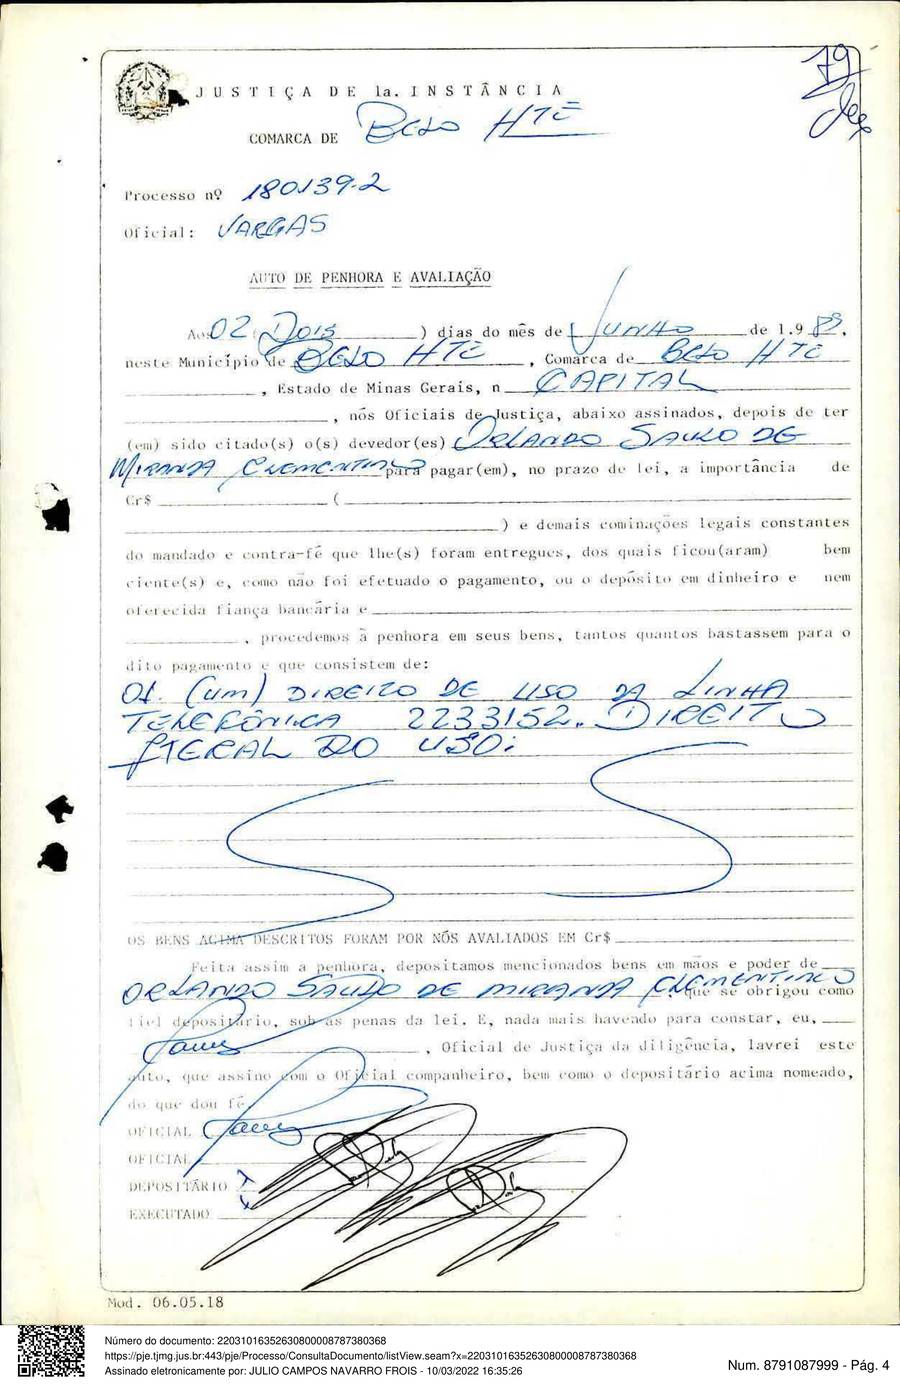 79
JUSTIÇA DE 1a. INSTÂNCIA
COMARCA DE BELO HTE
Processo nº 180139-2
Oficial: VARGAS
AUTO DE PENHORA E AVALIAÇÃO
Aos 02 (DOIS ) dias do mês de JUNHO de 1.989,
neste Município de BELO HTE, Comarca de BELO HTE
, Estado de Minas Gerais, n CAPITAL
, nós Oficiais de Justiça, abaixo assinados, depois de ter
(em) sido citado(s) o(s) devedor(es) ORLANDO SAULO DE
MIRANDA CLEMENTINO para pagar(em), no prazo de lei, a importância de
Cr$ (
) e demais cominações legais constantes
do mandado e contra-fé que lhe(s) foram entregues, dos quais ficou(aram) bem
ciente(s) e, como não foi efetuado o pagamento, ou o depósito em dinheiro e nem
oferecida fiança bancária e
, procedemos à penhora em seus bens, tantos quantos bastassem para o
dito pagamento e que consistem de:
01. (UM) DIREITO DE USO DA LINHA
TELEFÔNICA 2233152. DIREITO
DO USO;
OS BENS ACIMA DESCRITOS FORAM POR NÓS AVALIADOS EM Cr$
Feita assim a penhora, depositamos mencionados bens em mãos e poder de
ORLANDO SAULO DE MIRANDA CLEMENTINO que se obrigou como
fiel depositário, sob as penas da lei. E, nada mais havendo para constar, eu,
, Oficial de Justiça da diligência, lavrei este
auto, que assino com o Oficial companheiro, bem como o depositário acima nomeado,
do que dou fé.
OFICIAL
OFICIAL
DEPOSITÁRIO
EXECUTADO
Mod. 06.05.18
Número do documento: 22031016352630800008787380368
https://pje.tjmg.jus.br:443/pje/Processo/ConsultaDocumento/listView.seam?x=22031016352630800008787380368
Assinado eletronicamente por: JULIO CAMPOS NAVARRO FROIS - 10/03/2022 16:35:26
Num. 8791087999 - Pág. 4